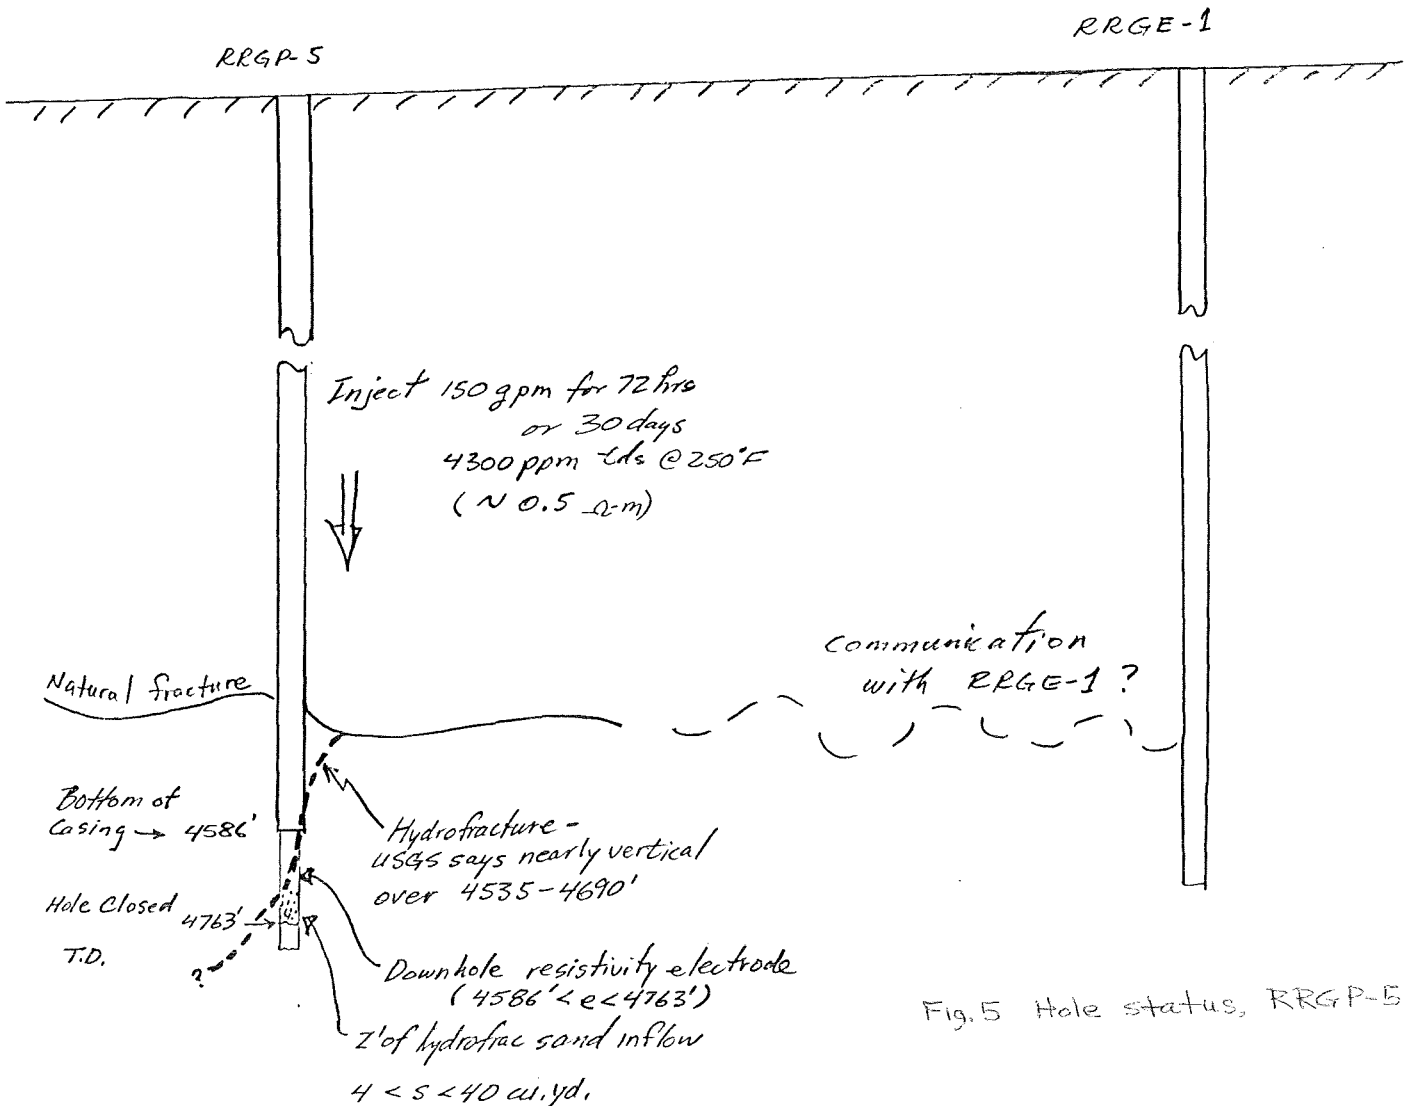 RRGP-5
RRGE-1
Inject 150 gpm for 72 hrs
or 30 days
4300 ppm tds @ 250°F
(~ 0.5 Ω-m)
Communication
with RRGE-1 ?
Natural fracture
Bottom of
Casing → 4586'
Hydrofracture -
USGS says nearly vertical
over 4535-4690'
Hole Closed
4763' →
T.D.
?
Downhole resistivity electrode
(4586' < e < 4763')
2' of hydrofrac sand inflow
4 < s < 40 cu.yd.
Fig. 5 Hole status, RRGP-5